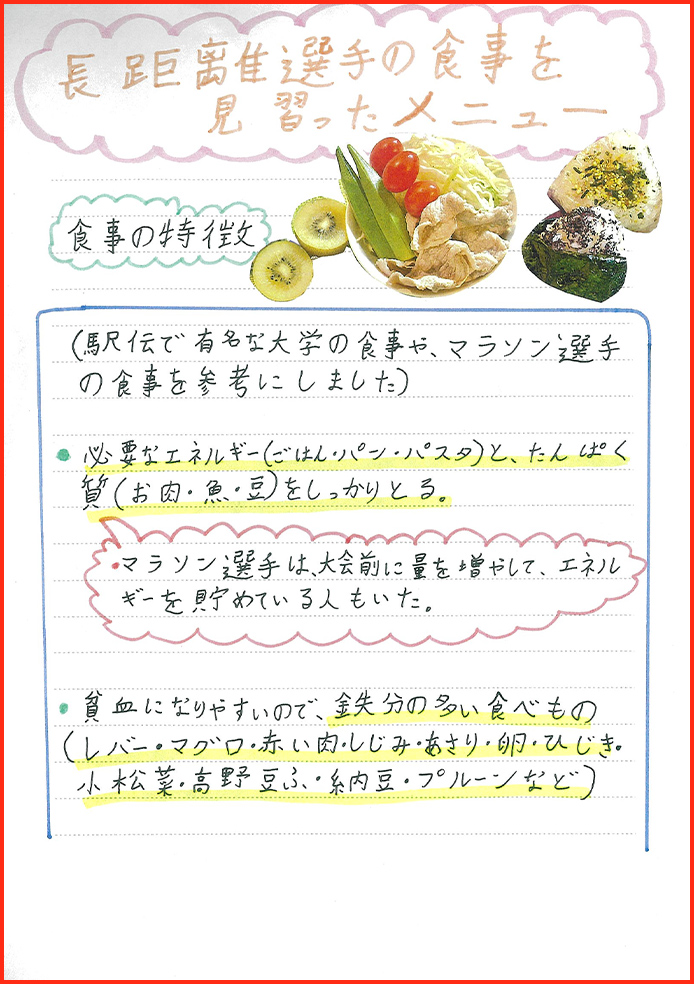 長距離選手の食事を
見習ったメニュー
食事の特徴
(駅伝で有名な大学の食事や、マラソン選手
の食事を参考にしました)
• 必要なエネルギー(ごはん・パン・パスタ)と、たんぱく
質(お肉・魚・豆)をしっかりとる。
•マラソン選手は、大会前に量を増やして、エネル
ギーを貯めている人もいた。
• 貧血になりやすいので、鉄分の多い食べもの
(レバー・マグロ・赤い肉・しじみ・あさり・卵・ひじき・
小松菜・高野豆ふ・納豆・プルーンなど)